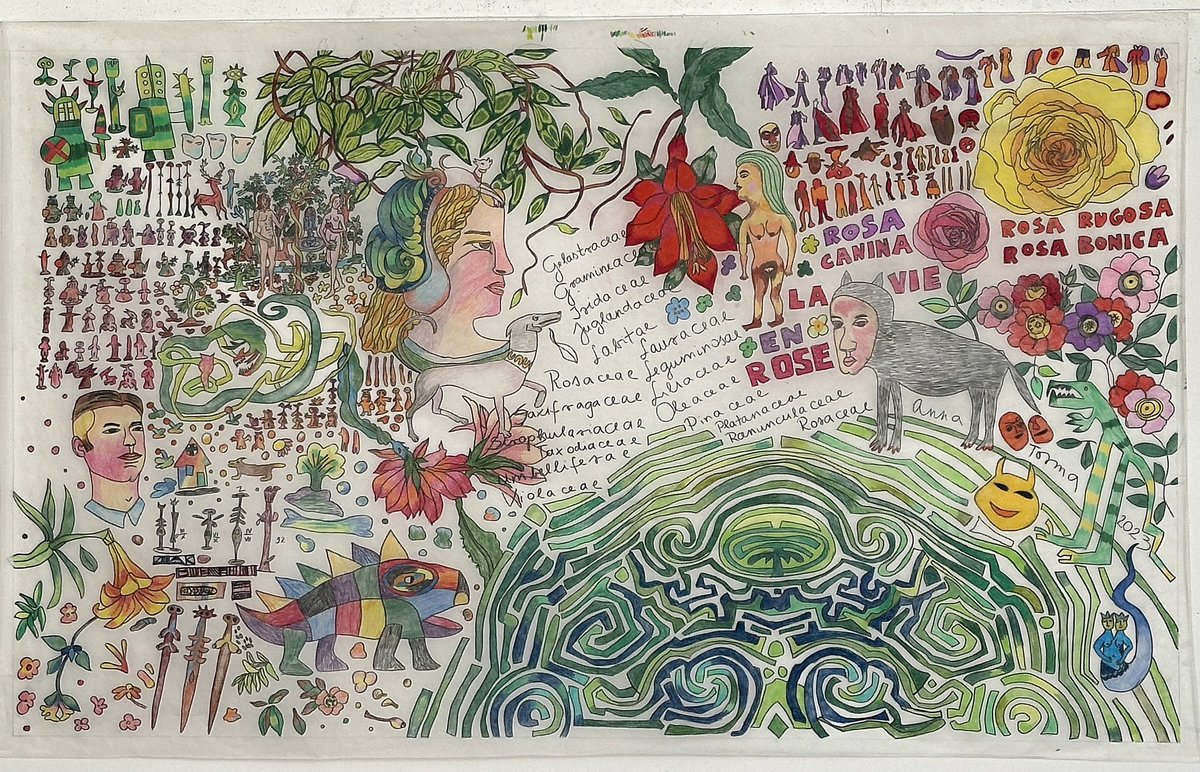 Celastraceae
Gramineac
Iridaceae
Juglandacea
Labitae
Lauraceae
Rosaceae Leguminosae
Saxifragaceae Liliaceae
Oleaceae
Scrophulariaceae
Taxodiaceae
Umbelliferae
Violaceae
Pinaceae
Platanaceae
Ranunculaceae
Rosaceae
ROSA
CANINA
ROSA RUGOSA
ROSA BONICA
LA VIE
EN
ROSE
Anna
Torma
2023